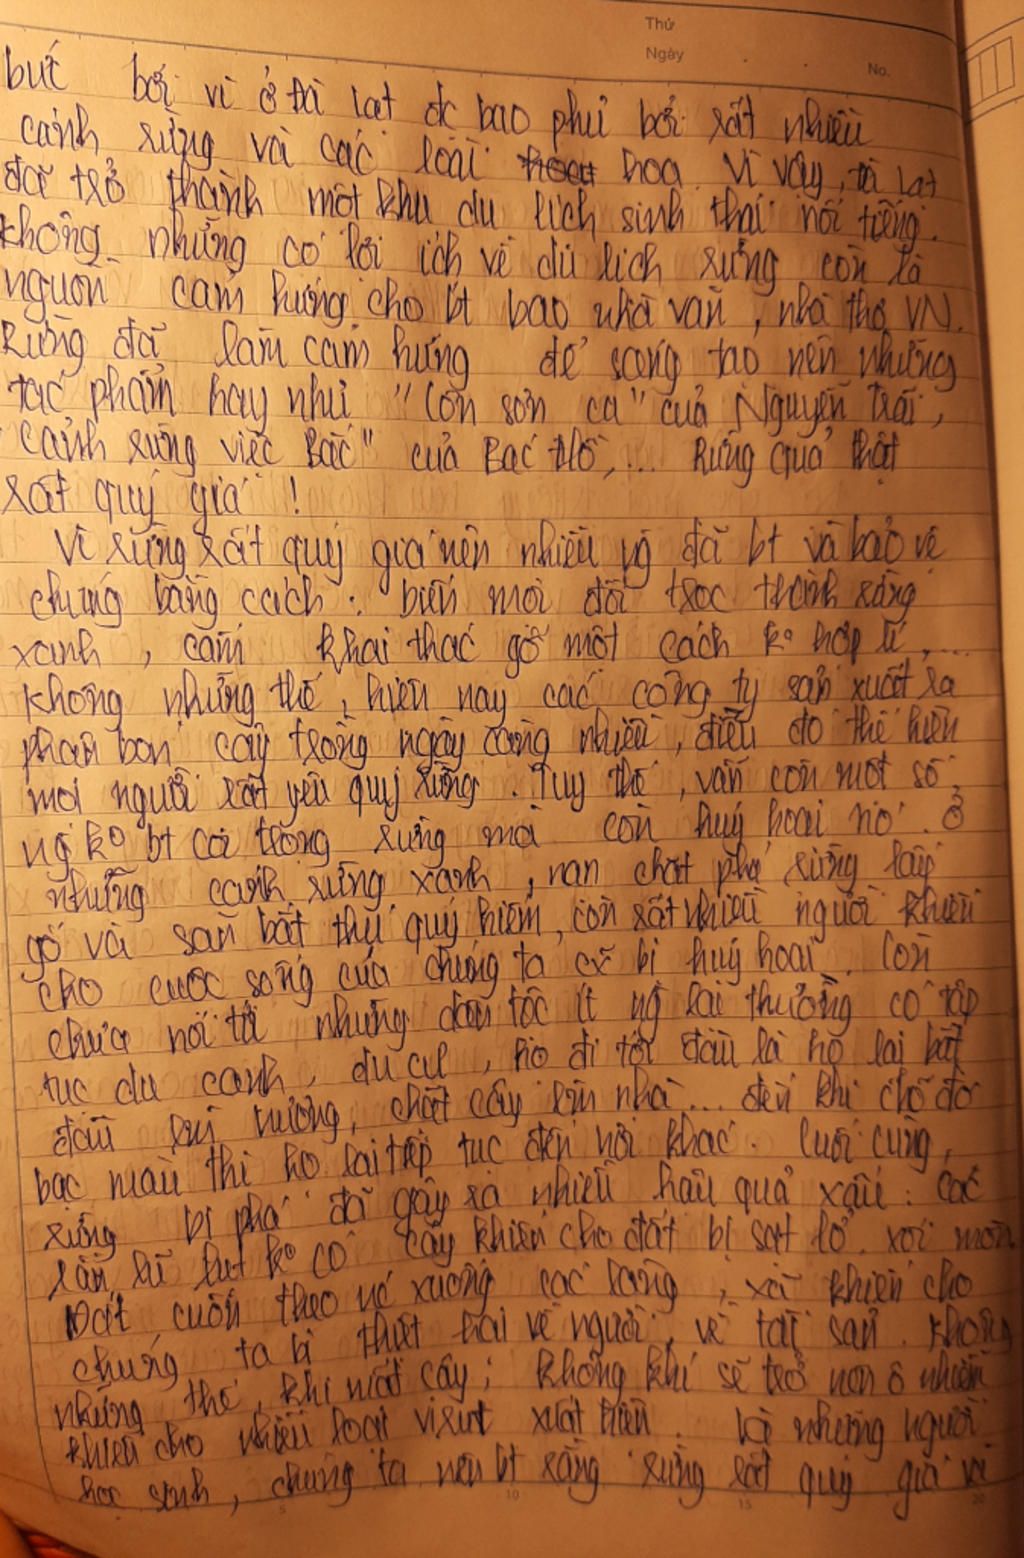 Thứ
Ngày
No.
bức bởi vì ở Đà Lạt đc bao phủ bởi rất nhiều
cánh rừng và các loài hoa. Vì vậy, Đà Lạt
đã trở thành một khu du lịch sinh thái nổi tiếng.
không những có lợi ích về du lịch rừng còn là
nguồn cảm hứng cho bt bao nhà văn, nhà thơ VN.
Rừng đã làm cảm hứng để sáng tạo nên những
tác phẩm hay như "Côn sơn ca" của Nguyễn Trãi,
"cảnh rừng việc Bắc" của Bác Hồ,... Rừng quả thật
rất quý giá !
Vì rừng rất quý giá nên nhiều ng đã bt và bảo vệ
chúng bằng cách: biến mọi đồi trọc thành rừng
xanh, cấm khai thác gỗ một cách ko hợp lí,...
không những thế, hiện nay các công ty sản xuất ra
phân bón cây trồng ngày càng nhiều, điều đó thể hiện
mọi người rất yêu quý rừng. Tuy thế, vẫn còn một số
ng ko bt coi trọng rừng mà còn huỷ hoại nó. Ở
những cánh rừng xanh, nạn chặt phá rừng lấy
gỗ và săn bắt thú quý hiếm, còn rất nhiều người khiến
cho cuộc sống của chúng ta bị huỷ hoại. Còn
chưa nói tới những dân tộc ít ng lại thường có tập
tục du canh, du cư, họ đi tới đâu là họ lại bắt
đầu làm nương, chặt cây làm nhà... đến khi chỗ đó
bạc màu thì họ lại tiếp tục đến nơi khác. Cuối cùng,
rừng bị phá đã gây ra nhiều hậu quả xấu: các
lần lũ lụt ko có cây khiến cho đất bị sạt lở, xói mòn
Đất cuốn theo xuống các làng, và khiến cho
chúng ta bị thiệt hại về người, về tài sản. Không
những thế, khi mất cây; không khí sẽ trở nên ô nhiễm
khiến cho nhiều loại virut xuất hiện. Là những người
học sinh, chúng ta nên bt rằng rừng rất quý giá và
5 10 15 20